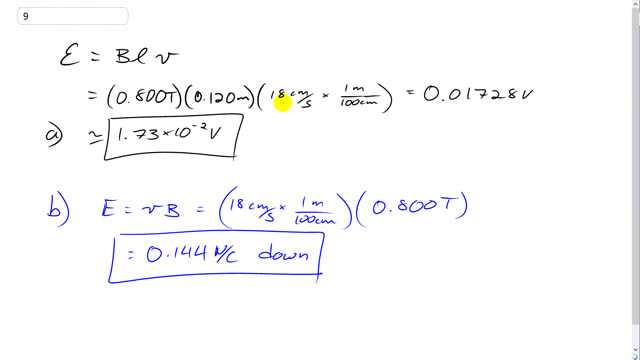 9
ℰ = Blv
= (0.800T)(0.120m)(18 cm/s × 1m/100cm) = 0.01728V
a) ≃ 1.73×10⁻²V
b) E = vB = (18 cm/s × 1m/100cm)(0.800T)
= 0.144 N/C down